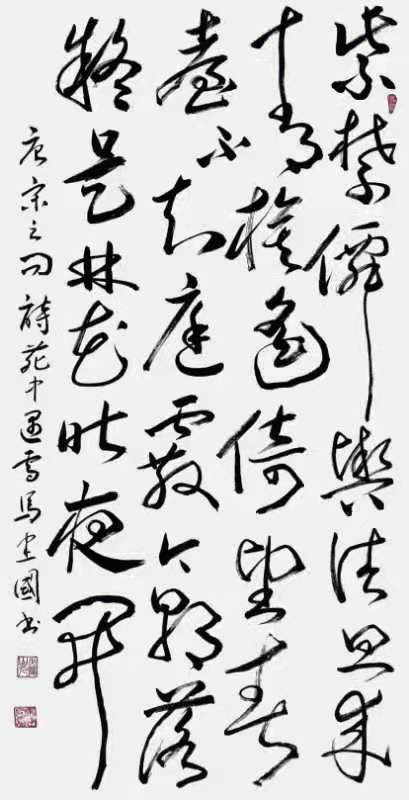 紫禁僊輿詰旦來
青旂遙倚望春
臺不知庭霰今朝落
疑是林花昨夜開
唐宋之问詩苑中遇雪馬國書